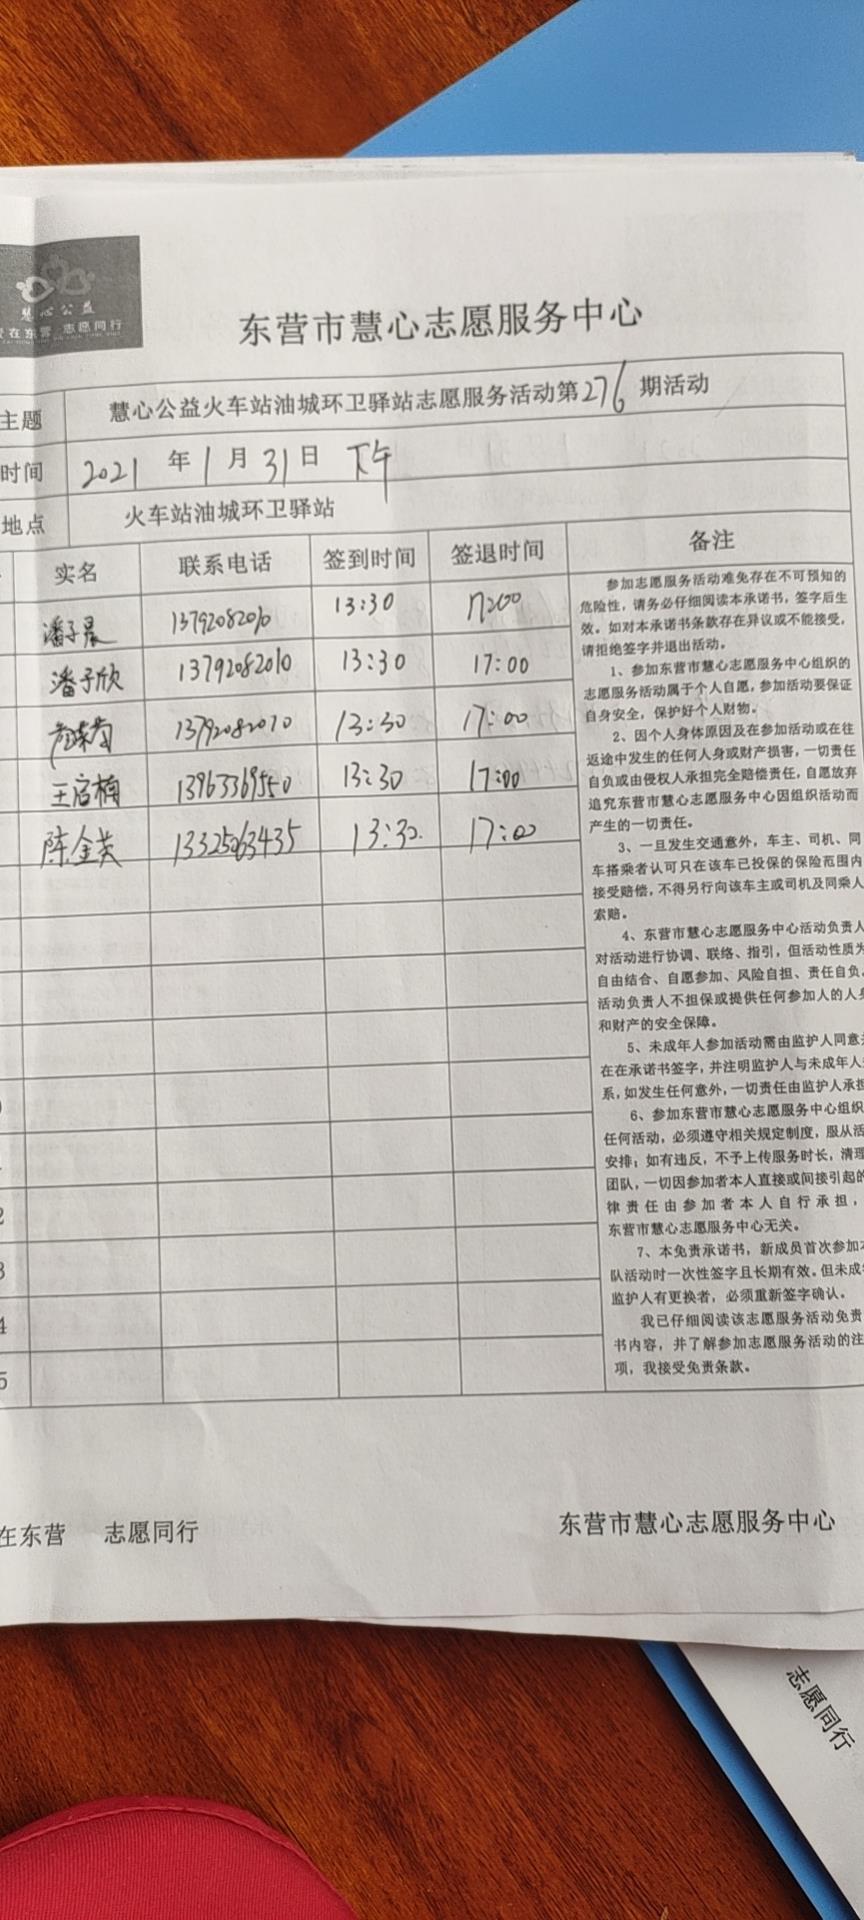 慧心公益
在东营 志愿同行
东营市慧心志愿服务中心
主题 慧心公益火车站油城环卫驿站志愿服务活动第276期活动
时间 2021 年 1 月 31 日 下午
地点 火车站油城环卫驿站
实名 联系电话 签到时间 签退时间 备注
潘子晨 13792082010 13:30 17:00
潘子欣 13792082010 13:30 17:00
13792082010 13:30 17:00
王启楠 13963369550 13:30 17:00
陈金英 13325063435 13:30 17:00
参加志愿服务活动难免存在不可预知的
危险性，请务必仔细阅读本承诺书，签字后生
效。如对本承诺书条款存在异议或不能接受，
请拒绝签字并退出活动。
1、参加东营市慧心志愿服务中心组织的
志愿服务活动属于个人自愿，参加活动要保证
自身安全，保护好个人财物。
2、因个人身体原因及在参加活动或在往
返途中发生的任何人身或财产损害，一切责任
自负或由侵权人承担完全赔偿责任，自愿放弃
追究东营市慧心志愿服务中心因组织活动而
产生的一切责任。
3、一旦发生交通意外，车主、司机、同
车搭乘者认可只在该车已投保的保险范围内
接受赔偿，不得另行向该车主或司机及同乘人
索赔。
4、东营市慧心志愿服务中心活动负责人
对活动进行协调、联络、指引，但活动性质为
自由结合、自愿参加、风险自担、责任自负。
活动负责人不担保或提供任何参加人的人身
和财产的安全保障。
5、未成年人参加活动需由监护人同意并
在在承诺书签字，并注明监护人与未成年人
系，如发生任何意外，一切责任由监护人承担
6、参加东营市慧心志愿服务中心组织
任何活动，必须遵守相关规定制度，服从活
安排；如有违反，不予上传服务时长，清理
团队，一切因参加者本人直接或间接引起的
律责任由参加者本人自行承担，
东营市慧心志愿服务中心无关。
7、本免责承诺书，新成员首次参加本
队活动时一次性签字且长期有效。但未成年
监护人有更换者，必须重新签字确认。
我已仔细阅读该志愿服务活动免责
书内容，并了解参加志愿服务活动的注
项，我接受免责条款。
2
3
4
5
在东营 志愿同行 东营市慧心志愿服务中心
志愿同行